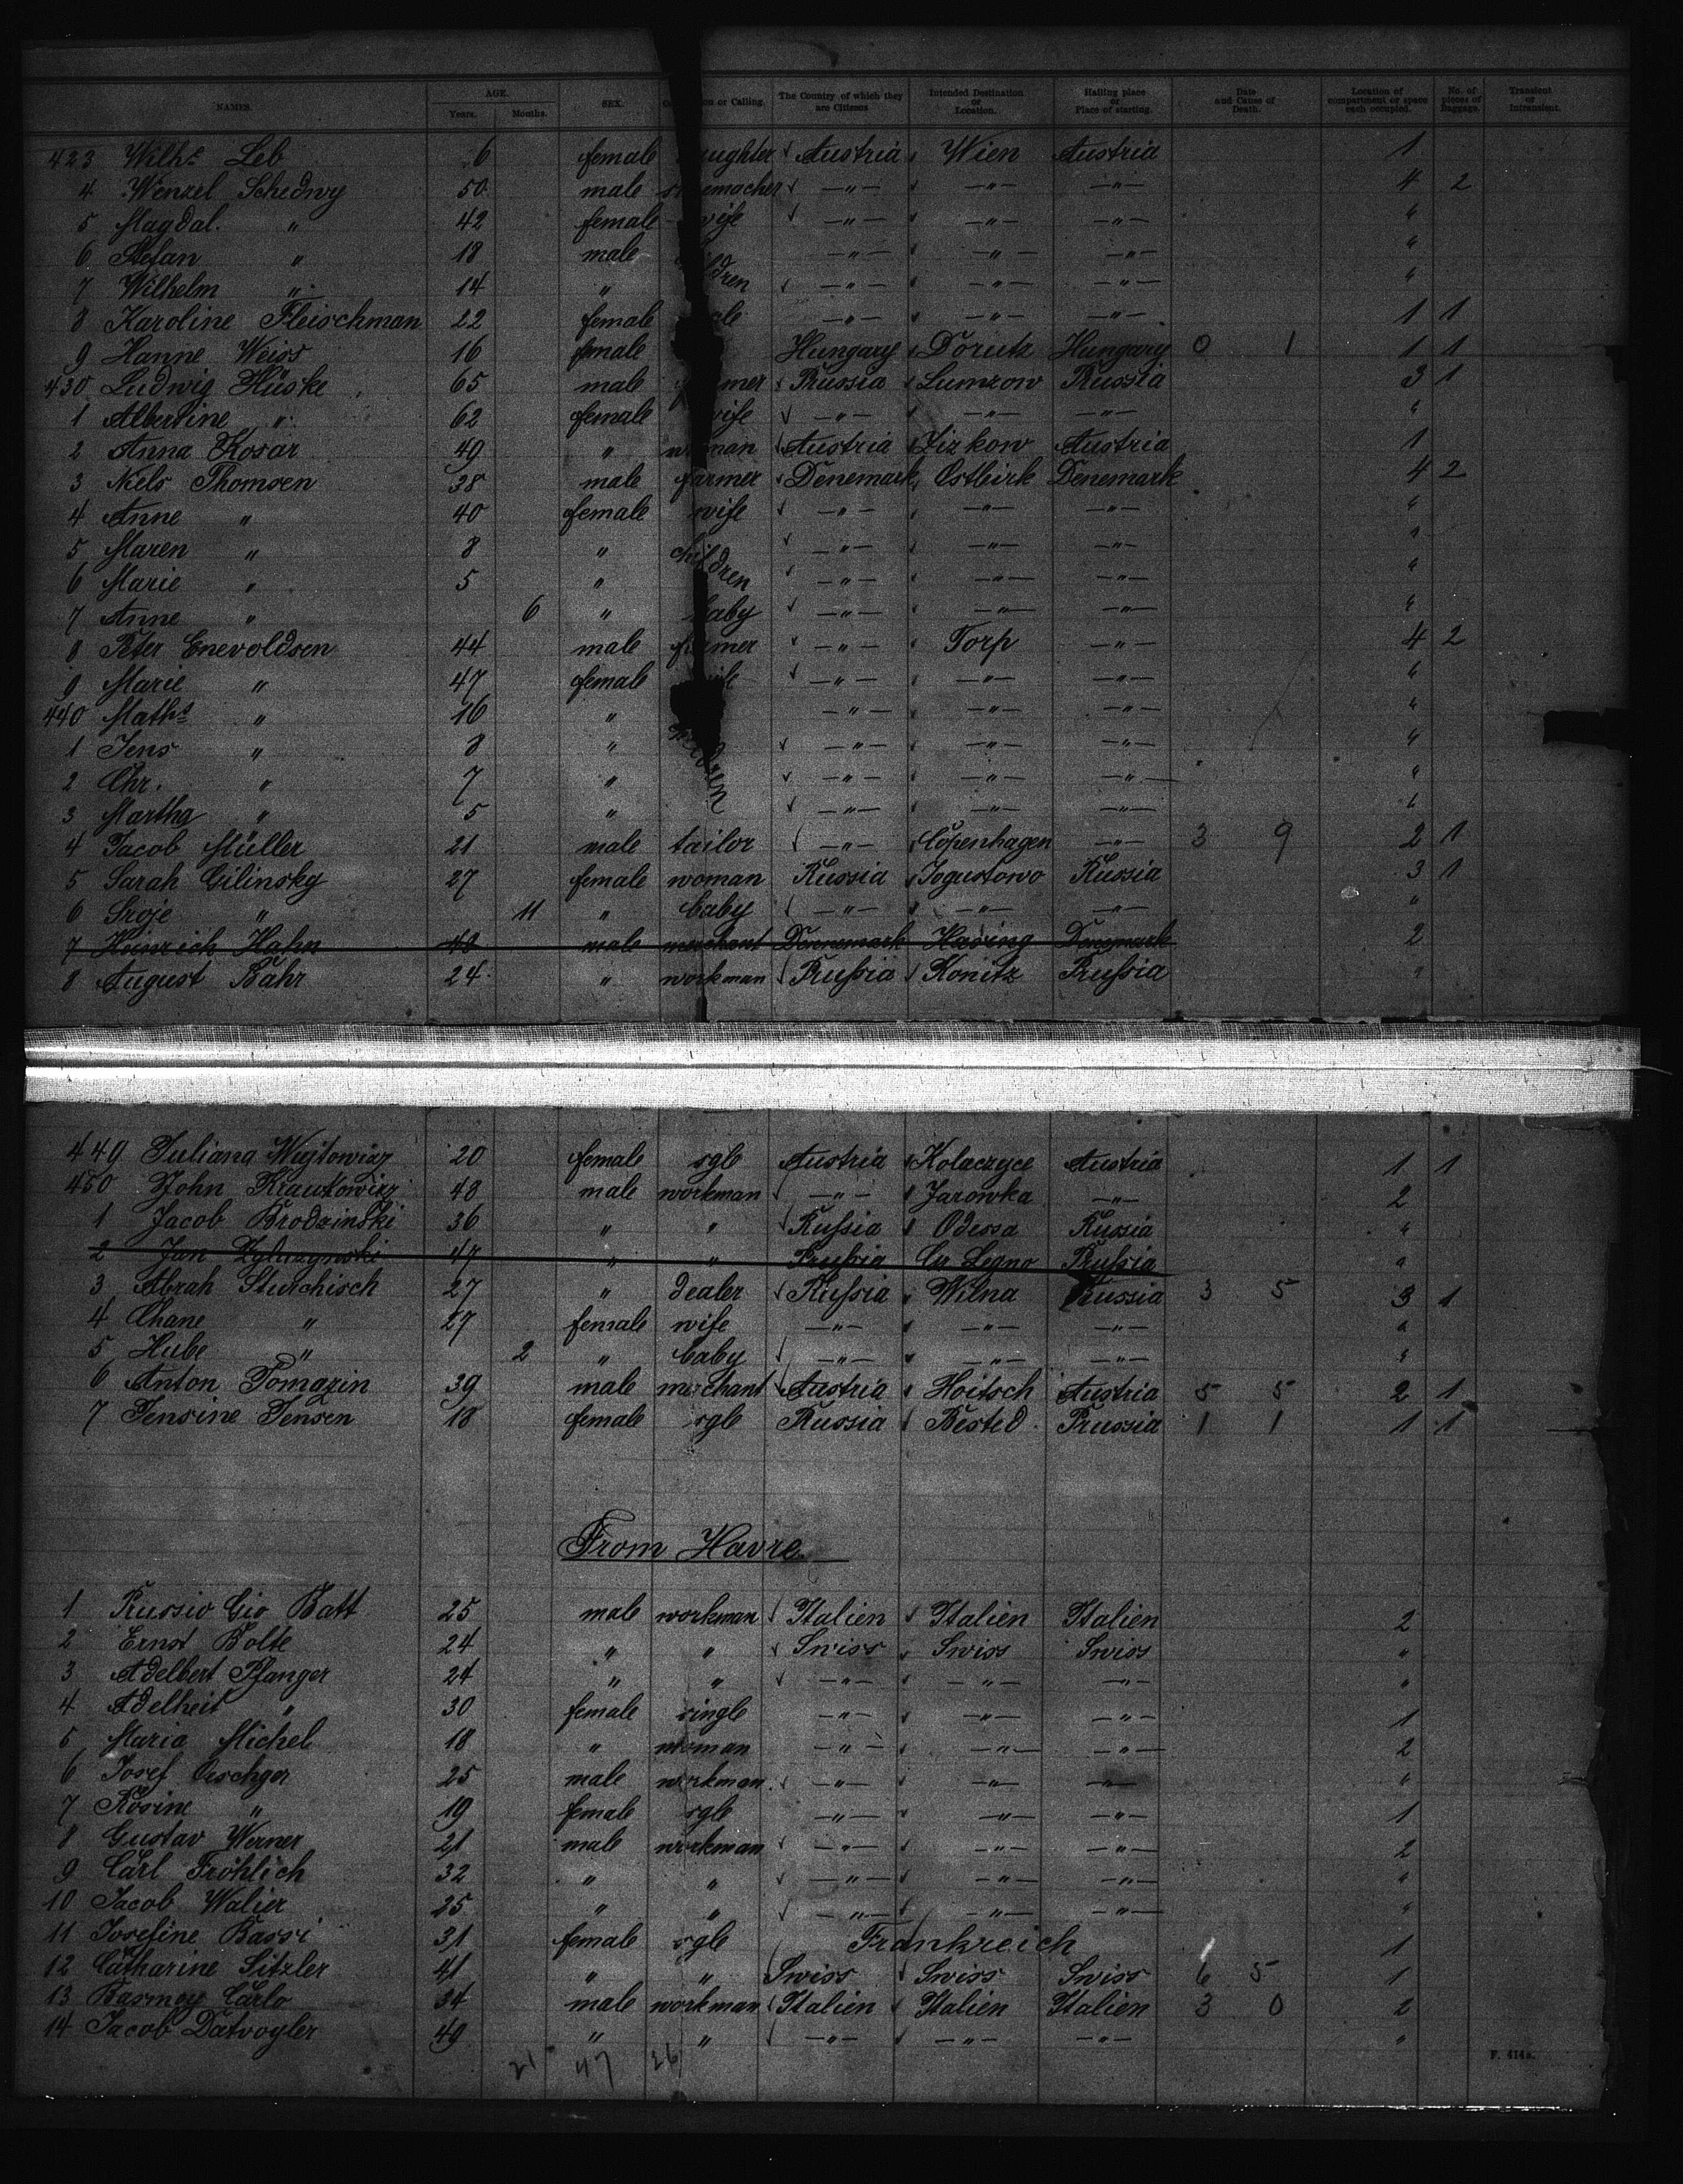 NAMES. AGE. Years. Months. SEX. or Calling. The Country of which they are Citizens Intended Destination or Location. Hailing place or Place of starting. Date and Cause of Death. Location of compartment or space each occupied. No. of pieces of Baggage. Transient or Intransient.
423 Wilhe Leb 6 female daughter Austria Wien Austria 1
4 Wenzel Schedwy 50 male shoemacher —"— —"— —"— 4 2
5 Magdal. " 42 female wife —"— —"— —"— "
6 Stefan " 18 male children —"— —"— —"— "
7 Wilhelm " 14 " —"— —"— —"— "
8 Karoline Fleischman 22 female sgle —"— —"— —"— 1 1
9 Hanne Weiss 16 female Hungary Dorutz Hungary 0 1 1 1
430 Ludwig Hüske 65 male farmer Prussia Lumzow Prussia 3 1
1 Albertine " 62 female wife —"— —"— —"— "
2 Anna Kosar 49 " woman Austria Zizkow Austria 1
3 Niels Thomsen 38 male farmer Denemark Ostbirk Denemark 4 2
4 Anne " 40 female wife —"— —"— —"— "
5 Maren " 8 " children —"— —"— —"— "
6 Marie " 5 " —"— —"— —"— "
7 Anne " 6 " baby —"— —"— —"— "
8 Peter Enevoldsen 44 male farmer —"— Torp —"— 4 2
9 Marie " 47 female wife —"— —"— —"— "
440 Maths " 16 " children —"— —"— —"— "
1 Jens " 8 " —"— —"— —"— "
2 Chr. " 7 " —"— —"— —"— "
3 Martha " 5 " —"— —"— —"— "
4 Jacob Müller 21 male tailor —"— Copenhagen —"— 3 9 2 1
5 Sarah Gilinsky 27 female woman Russia Jogustowo Russia 3 1
6 Sroje " 11 " baby —"— —"— —"— "
7 Heinrich Hahn 48 male merchant Dennemark Hasing Denemark 2
8 August Bahr 24 " workman Prussia Konitz Prussia "
449 Juliana Wujtowicz 20 female sgle Austria Kolaczyce Austria 1 1
450 John Krautowicz 48 male workman —"— Jarowka —"— 2
1 Jacob Brodzinski 36 " " Russia Odessa Russia "
2 Jan 47 " " Prussia Legno Prussia "
3 Abrah Sturchisch 27 " dealer Russia Wilna Russia 3 5 3 1
4 Chane " 27 female wife —"— —"— —"— "
5 Hube " 2 " baby —"— —"— —"— "
6 Anton Tomazin 39 male merchant Austria Hoitsch Austria 5 5 2 1
7 Jensine Jensen 18 female sgle Prussia Bested Prussia 1 1 1 1
From Havre.
1 Russio Gio Batt 25 male workman Italien Italien Italien 2
2 Ernst Bolte 24 " " Swiss Swiss Swiss "
3 Adelbert Pfanger 24 " " —"— —"— —"— "
4 Adelheit " 30 female single —"— —"— —"— 1
5 Maria Michel 18 " woman —"— —"— —"— 2
6 Josef Oeschger 25 male workman —"— —"— —"— "
7 Rosine " 19 female sgle —"— —"— —"— 1
8 Gustav Werner 21 male workman —"— —"— —"— 2
9 Carl Fröhlich 32 " " —"— —"— —"— "
10 Jacob Walier 25 " " —"— —"— —"— "
11 Josefine Bassi 31 female sgle Frankreich 1
12 Catharine Sitzler 41 " " Swiss Swiss Swiss 6 5 1
13 Basmoy Carlo 34 male workman Italien Italien Italien 3 0 2
14 Jacob Datvogler 49 " " —"— —"— —"— "
21 47 26